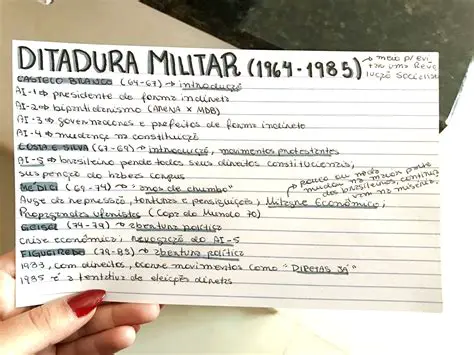 DITADURA MILITAR (1964-1985)
→ meio p/ evi
tar uma Revo
lução Socialista
CASTELO BRANCO (64-67) → introdução
AI-1 → presidente de forma indireta
AI-2 → bipartidarismo (ARENA x MDB)
AI-3 → governadores e prefeitos de forma indireta
AI-4 → mudança na constituição
COSTA E SILVA (67-69) → introdução, movimentos protestantes
AI-5 → brasileiro perde todos seus direitos constitucionais,
suspenção do habeas corpus
MÉDICI (69-74) → "anos de chumbo"
→ pouco ou nada
mudou na maior parte
dos brasileiros, continua
vam na miséria.
Auge da repressão, torturas e perseguições; Milagre Econômico;
Propagandas ufanistas (Copa do Mundo 70)
GEISEL (74-79) → abertura política
Crise econômica, revogação do AI-5
FIGUEIREDO (79-85) → abertura política
1983, com direitos, ocorre movimentos como "DIRETAS JÁ"
1985 é a tentativa de eleição diretas